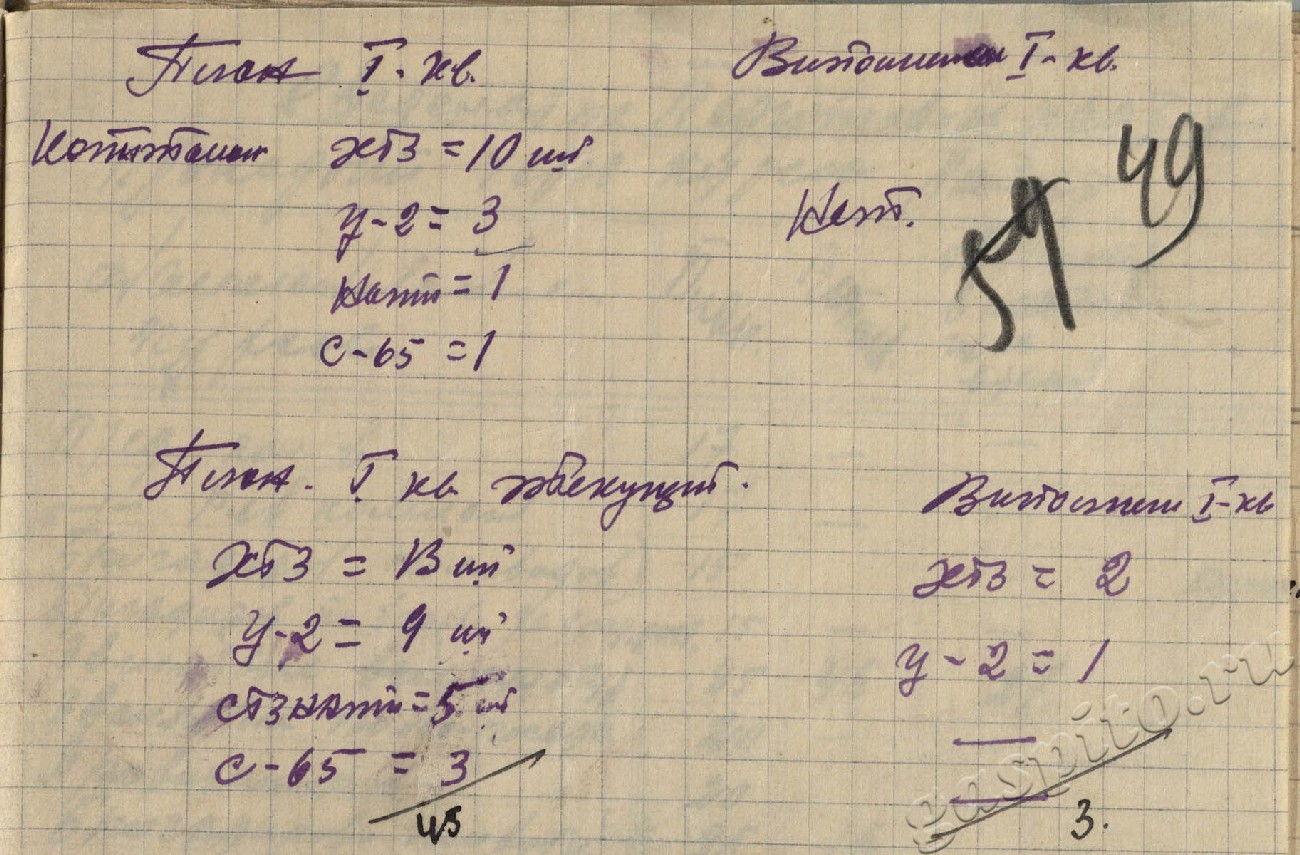 План I-кв. Выполнен I-кв.
Капитальн ХТЗ = 10 шт
49
У-2 = 3
Нати = 1
С-65 = 1
План. I кв текущий. Выполнен I-кв
ХТЗ = шт ХТЗ = 2
У-2 = 9 шт У-2 = 1
СТЗ нати = 5 шт —
С-65 = 3 —
45 3.
gaspito.ru